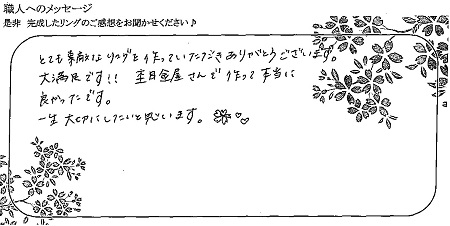 職人へのメッセージ
是非 完成したリングのご感想をお聞かせください♪
とても素敵なリングを作っていただきありがとうございます。
大満足です!! 杢目金屋さんで作って本当に
良かったです。
一生大切にしたいと思います。